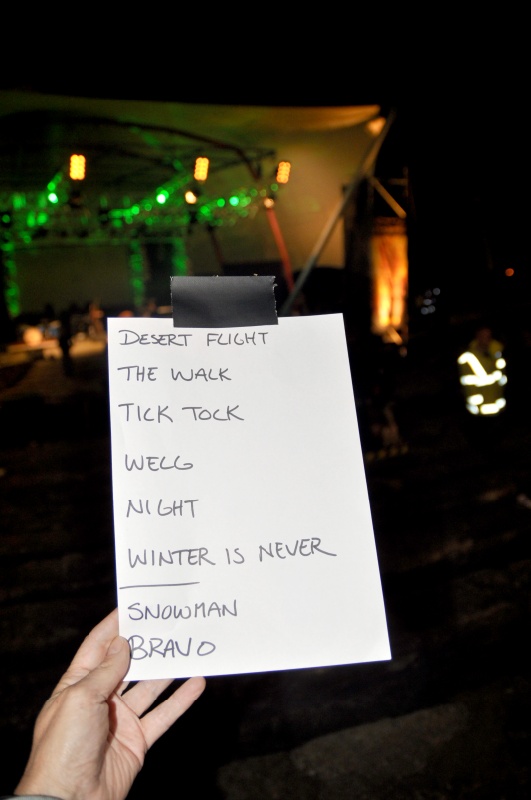 DESERT FLIGHT
THE WALK
TICK TOCK
WELG
NIGHT
WINTER IS NEVER
SNOWMAN
BRAVO